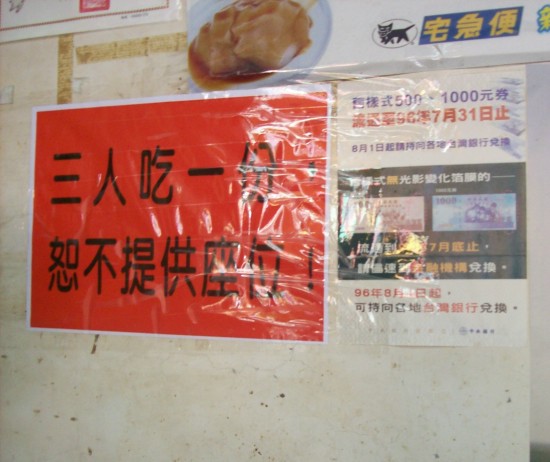 宅急便
三人吃一份，
恕不提供座位！
舊樣式500、1000元券
流通至96年7月31日止
8月1日起請持向各地台灣銀行兌換
舊樣式無光影變化箔膜的
7月底止，
金融機構兌換。
96年8月1日起，
可持向各地台灣銀行兌換。